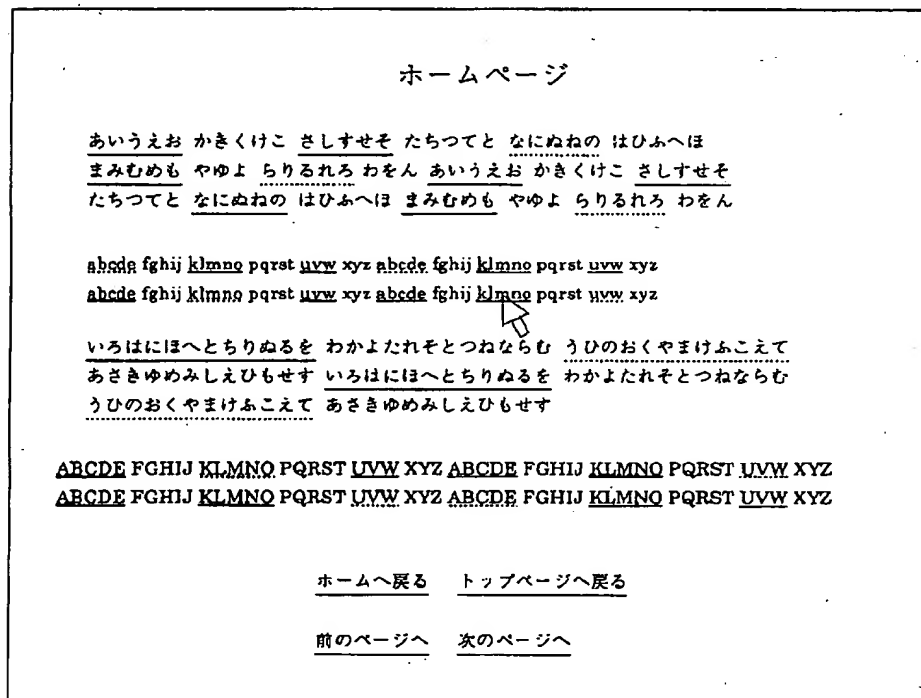 ホームページ
あいうえお かきくけこ さしすせそ たちつてと なにぬねの はひふへほ
まみむめも やゆよ らりるれろ わをん あいうえお かきくけこ さしすせそ
たちつてと なにぬねの はひふへほ まみむめも やゆよ らりるれろ わをん
abcde fghij klmno pqrst uvw xyz abcde fghij klmno pqrst uvw xyz
abcde fghij klmno pqrst uvw xyz abcde fghij klmno pqrst uvw xyz
いろはにほへとちりぬるを わかよたれそとつねならむ うひのおくやまけふこえて
あさきゆめみしえひもせす いろはにほへとちりぬるを わかよたれそとつねならむ
うひのおくやまけふこえて あさきゆめみしえひもせす
ABCDE FGHIJ KLMNO PQRST UVW XYZ ABCDE FGHIJ KLMNO PQRST UVW XYZ
ABCDE FGHIJ KLMNO PQRST UVW XYZ ABCDE FGHIJ KLMNO PQRST UVW XYZ
ホームへ戻る トップページへ戻る
前のページへ 次のページへ